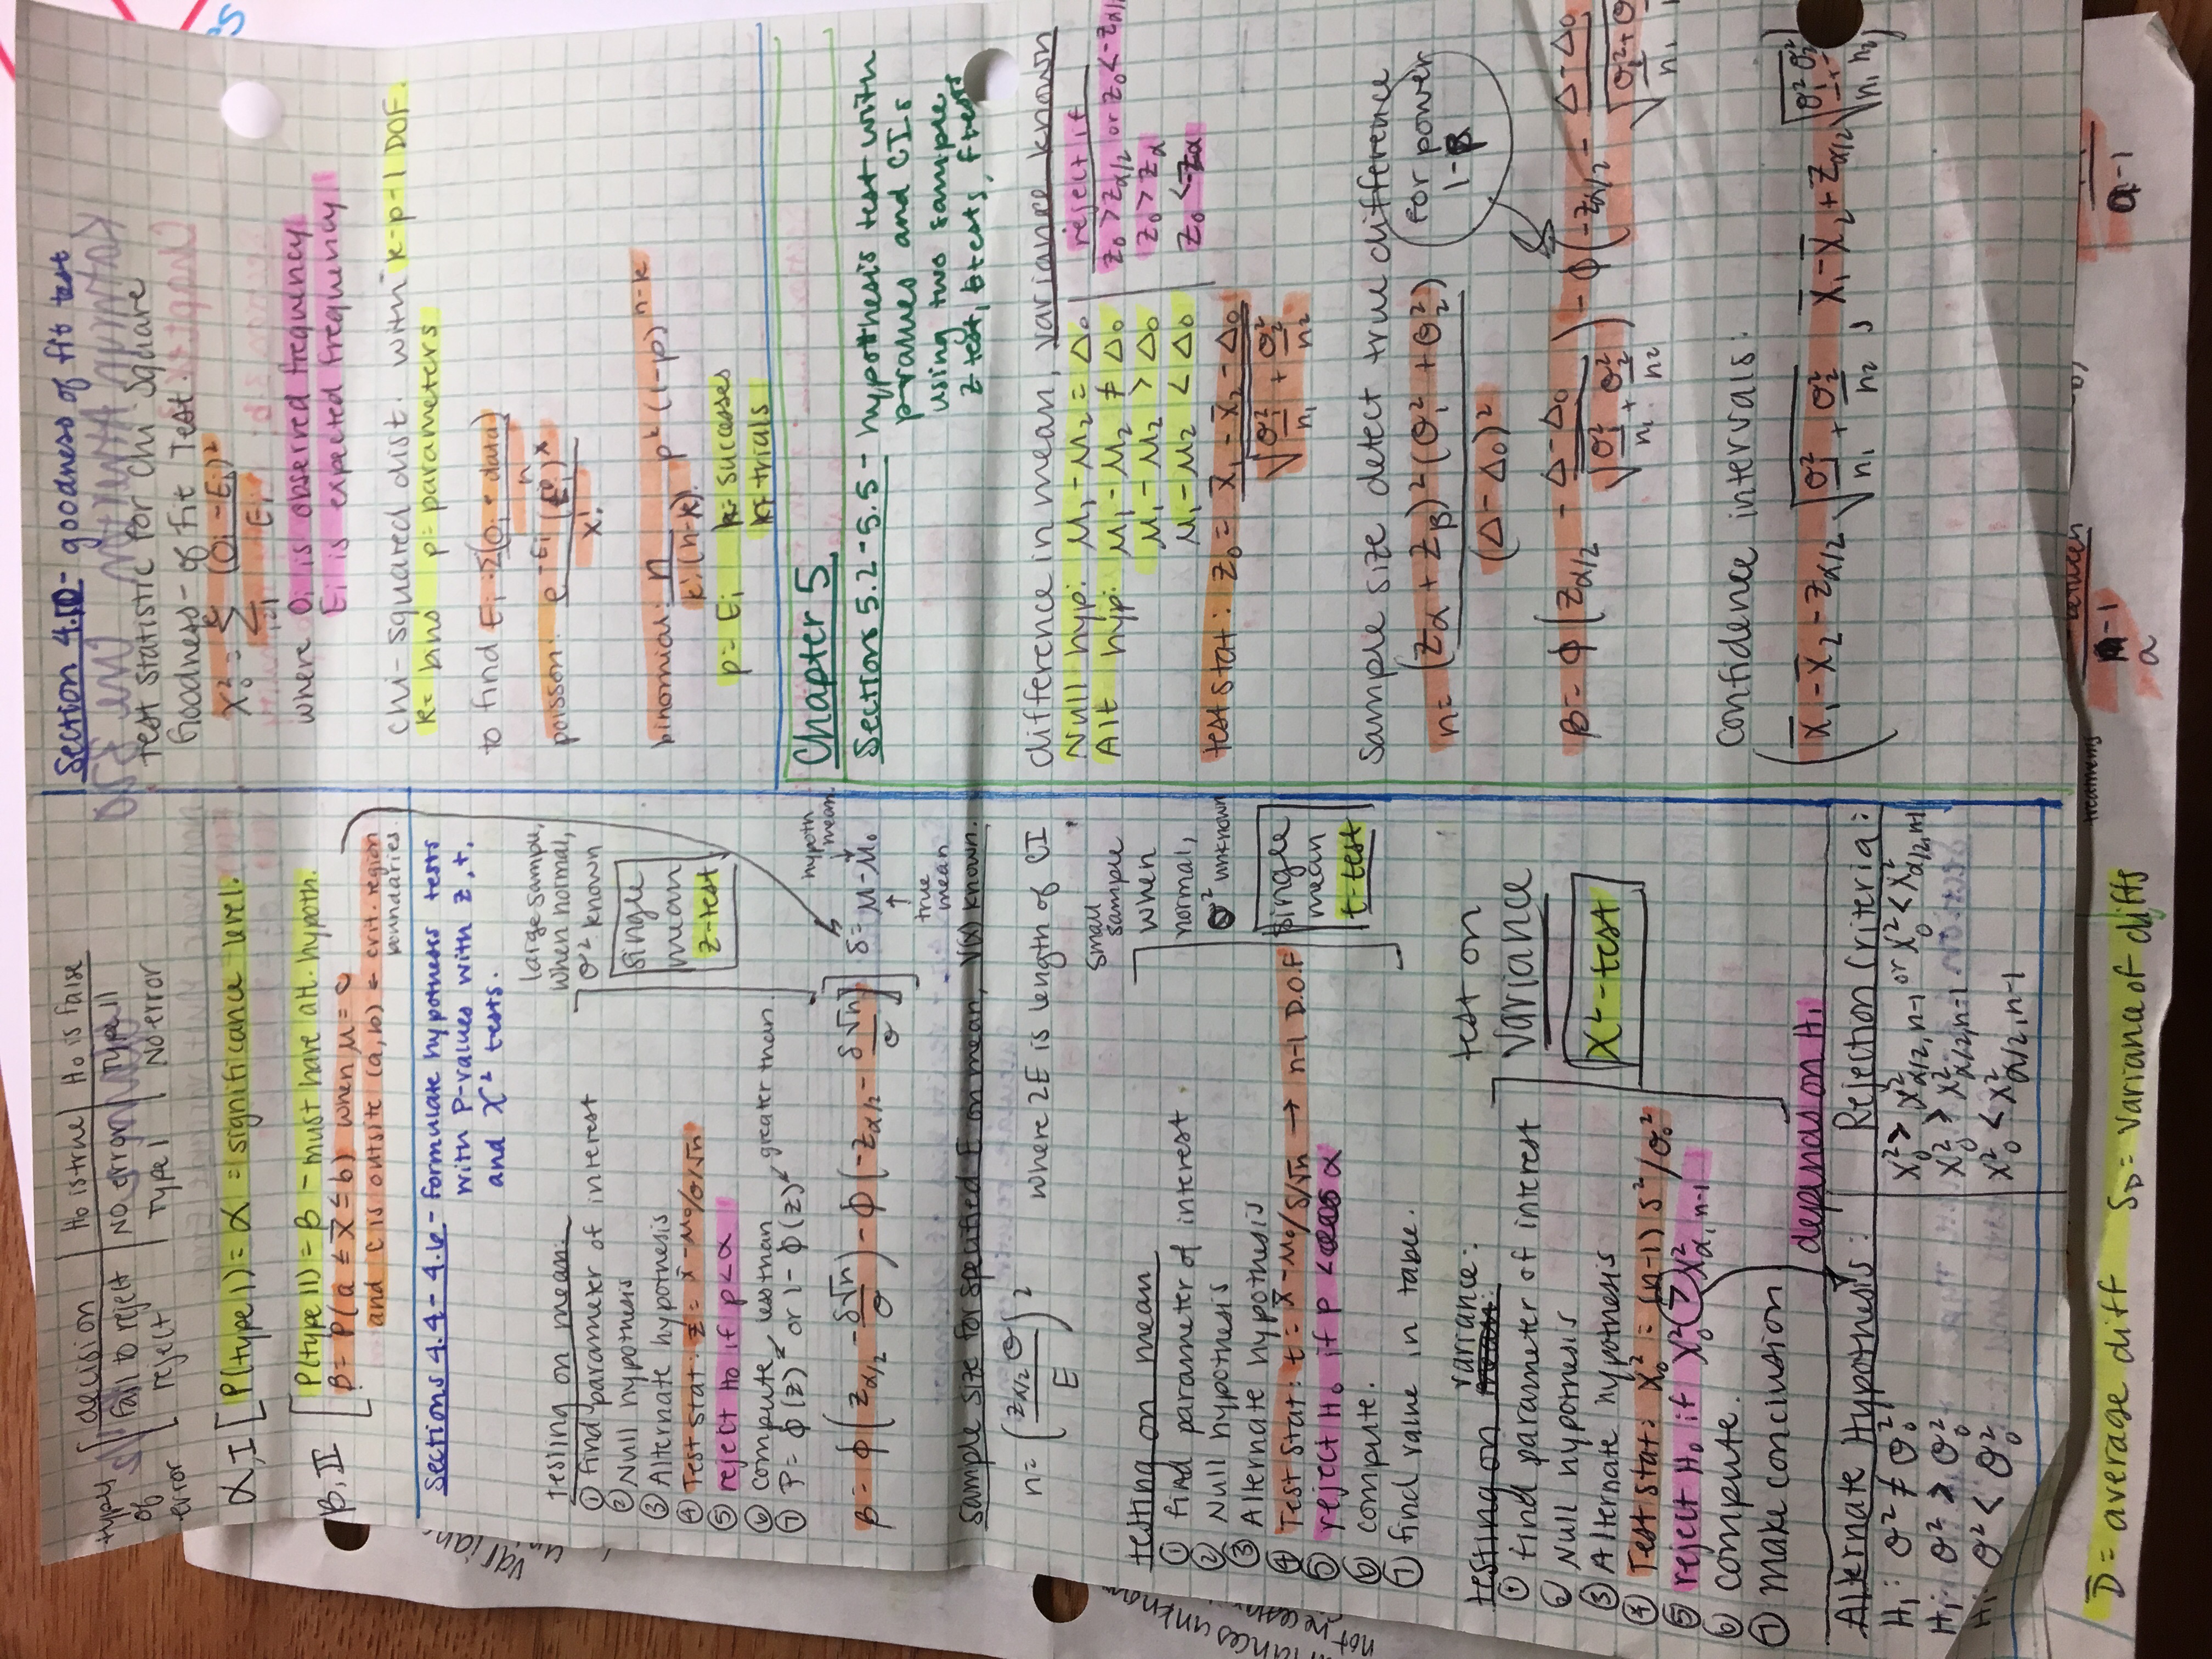 types of error
decision | H₀ is true | H₀ is false
fail to reject | No error | Type II
reject | Type I | No error
α, I [ P(type I) = α = significance level.
β, II [ P(type II) = β - must have alt. hypoth.
β = P(a ≤ x̄ ≤ b) when μ = c
and c is outside (a,b) ← crit. region
boundaries.
Sections 4.4-4.6 - formulate hypothesis tests
with P-values with z, t,
and χ² tests.
large sample,
when normal,
σ² known
single
mean
z-test
testing on mean:
① find parameter of interest
② Null hypothesis
③ Alternate hypothesis
④ Test stat: z = x̄-μ₀/σ/√n
⑤ reject H₀ if p<α
⑥ compute
less than
greater than
⑦ P = ϕ(z) or 1-ϕ(z)
β = ϕ(z_α/2 - δ√n/σ) - ϕ(-z_α/2 - δ√n/σ)
δ = μ-μ₀
hypoth
mean
true
mean
sample size for specified E on mean, V(x) known.
n = (z_α/2 σ / E)² where 2E is length of CI
small
sample
when
normal,
σ² unknown
single
mean
t-test
testing on mean
① find parameter of interest
② Null hypothesis
③ Alternate hypothesis
④ Test stat: t = x̄-μ₀/s/√n → n-1 D.O.F
⑤ reject H₀ if p < α
⑥ compute.
⑦ find value in table.
testing on mean: variance:
① find parameter of interest
② Null hypothesis
③ Alternate hypothesis
④ Test stat: χ₀² = (n-1) s²/σ₀²
⑤ reject H₀ if χ₀² > χ²α, n-1
⑥ compute.
⑦ make conclusion
test on
variance
χ²-test
depends on H₁
Alternate Hypothesis: | Rejection Criteria:
H₁: σ² ≠ σ₀² | χ₀² > χ²α/2, n-1 or χ₀² < χ²α/2, n-1
H₁: σ² > σ₀² | χ₀² > χ²α/2, n-1
H₁: σ² < σ₀² | χ₀² < χ²α/2, n-1
D̄ = average diff S_D = variance of diffs
Section 4.10 - goodness of fit test
test statistic for Chi Square
Goodness-of Fit Test.
χ₀² = Σ i=1 k (Oᵢ - Eᵢ)² / Eᵢ
where Oᵢ is observed frequency
Eᵢ is expected frequency
chi-squared dist. with k-p-1 DOF.
k = bins p = parameters
to find Eᵢ = Σ(Oᵢ · data) / n
poisson: e^-Eᵢ (Eᵢ)^x / x!
binomial: n / k!(n-k)! p^k (1-p)^n-k
p = Eᵢ k = successes
trials
Chapter 5
Sections 5.2-5.5 - hypothesis test with
p-values and CIs
using two sample
z test, t tests, F tests
difference in mean, variance known
Null hyp: μ₁-μ₂ = Δ₀ | reject if
Alt hyp: μ₁-μ₂ ≠ Δ₀ | z₀ > z_α/2 or z₀ < -z_α/2
μ₁-μ₂ > Δ₀ | z₀ > z_α
μ₁-μ₂ < Δ₀ | z₀ < -z_α
test stat: z₀ = x̄₁ - x̄₂ - Δ₀ / √(σ₁²/n₁ + σ₂²/n₂)
sample size detect true difference
n = (z_α + z_β)² (σ₁² + σ₂²) / (Δ-Δ₀)²
for power
1-β
β = ϕ(z_α/2 - Δ-Δ₀ / √(σ₁²/n₁ + σ₂²/n₂)) - ϕ(-z_α/2 - Δ-Δ₀ / √(σ₁²/n₁ + σ
confidence intervals:
(x̄₁-x̄₂ - z_α/2 √(σ₁²/n₁ + σ₂²/n₂), x̄₁-x̄₂ + z_α/2 √(σ₁²/n₁ + σ₂²/n₂))
treatments
between
a-1
a
variances unknown
not necess